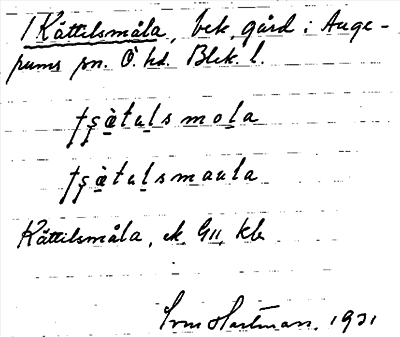 1 Kättilsmåla, bek. gård i Auge-
rums sn. Ö. hd. Blek. l.
tʂɑ̀̈tu̲l̲s mo̲l̲a
tʂɑ̀̈tu̲l̲smaula
Kättilsmåla, ek G11, kbr
Hartman. 1931